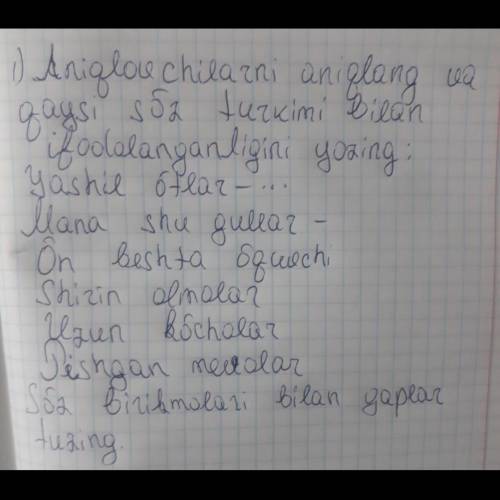 1) Aniqlovchilarni aniqlang va
qaysi sõz turkimi bilan
ifodalanganligini yozing:
Yashil õtlar - ...
Mana shu gullar -
Õn beshta õquvchi
Shirin olmalar
Uzun kõchalar
Pishgan mevalar
Sõz birikmalari bilan gaplar
tuzing.